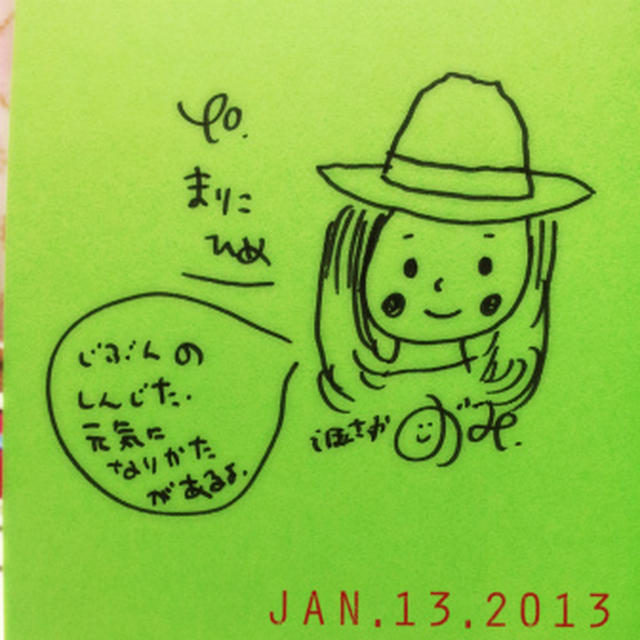 to.
まりに
ひめ
じぶんの
しんじた.
元気に
なりかた
があるよ.
JAN.13.2013